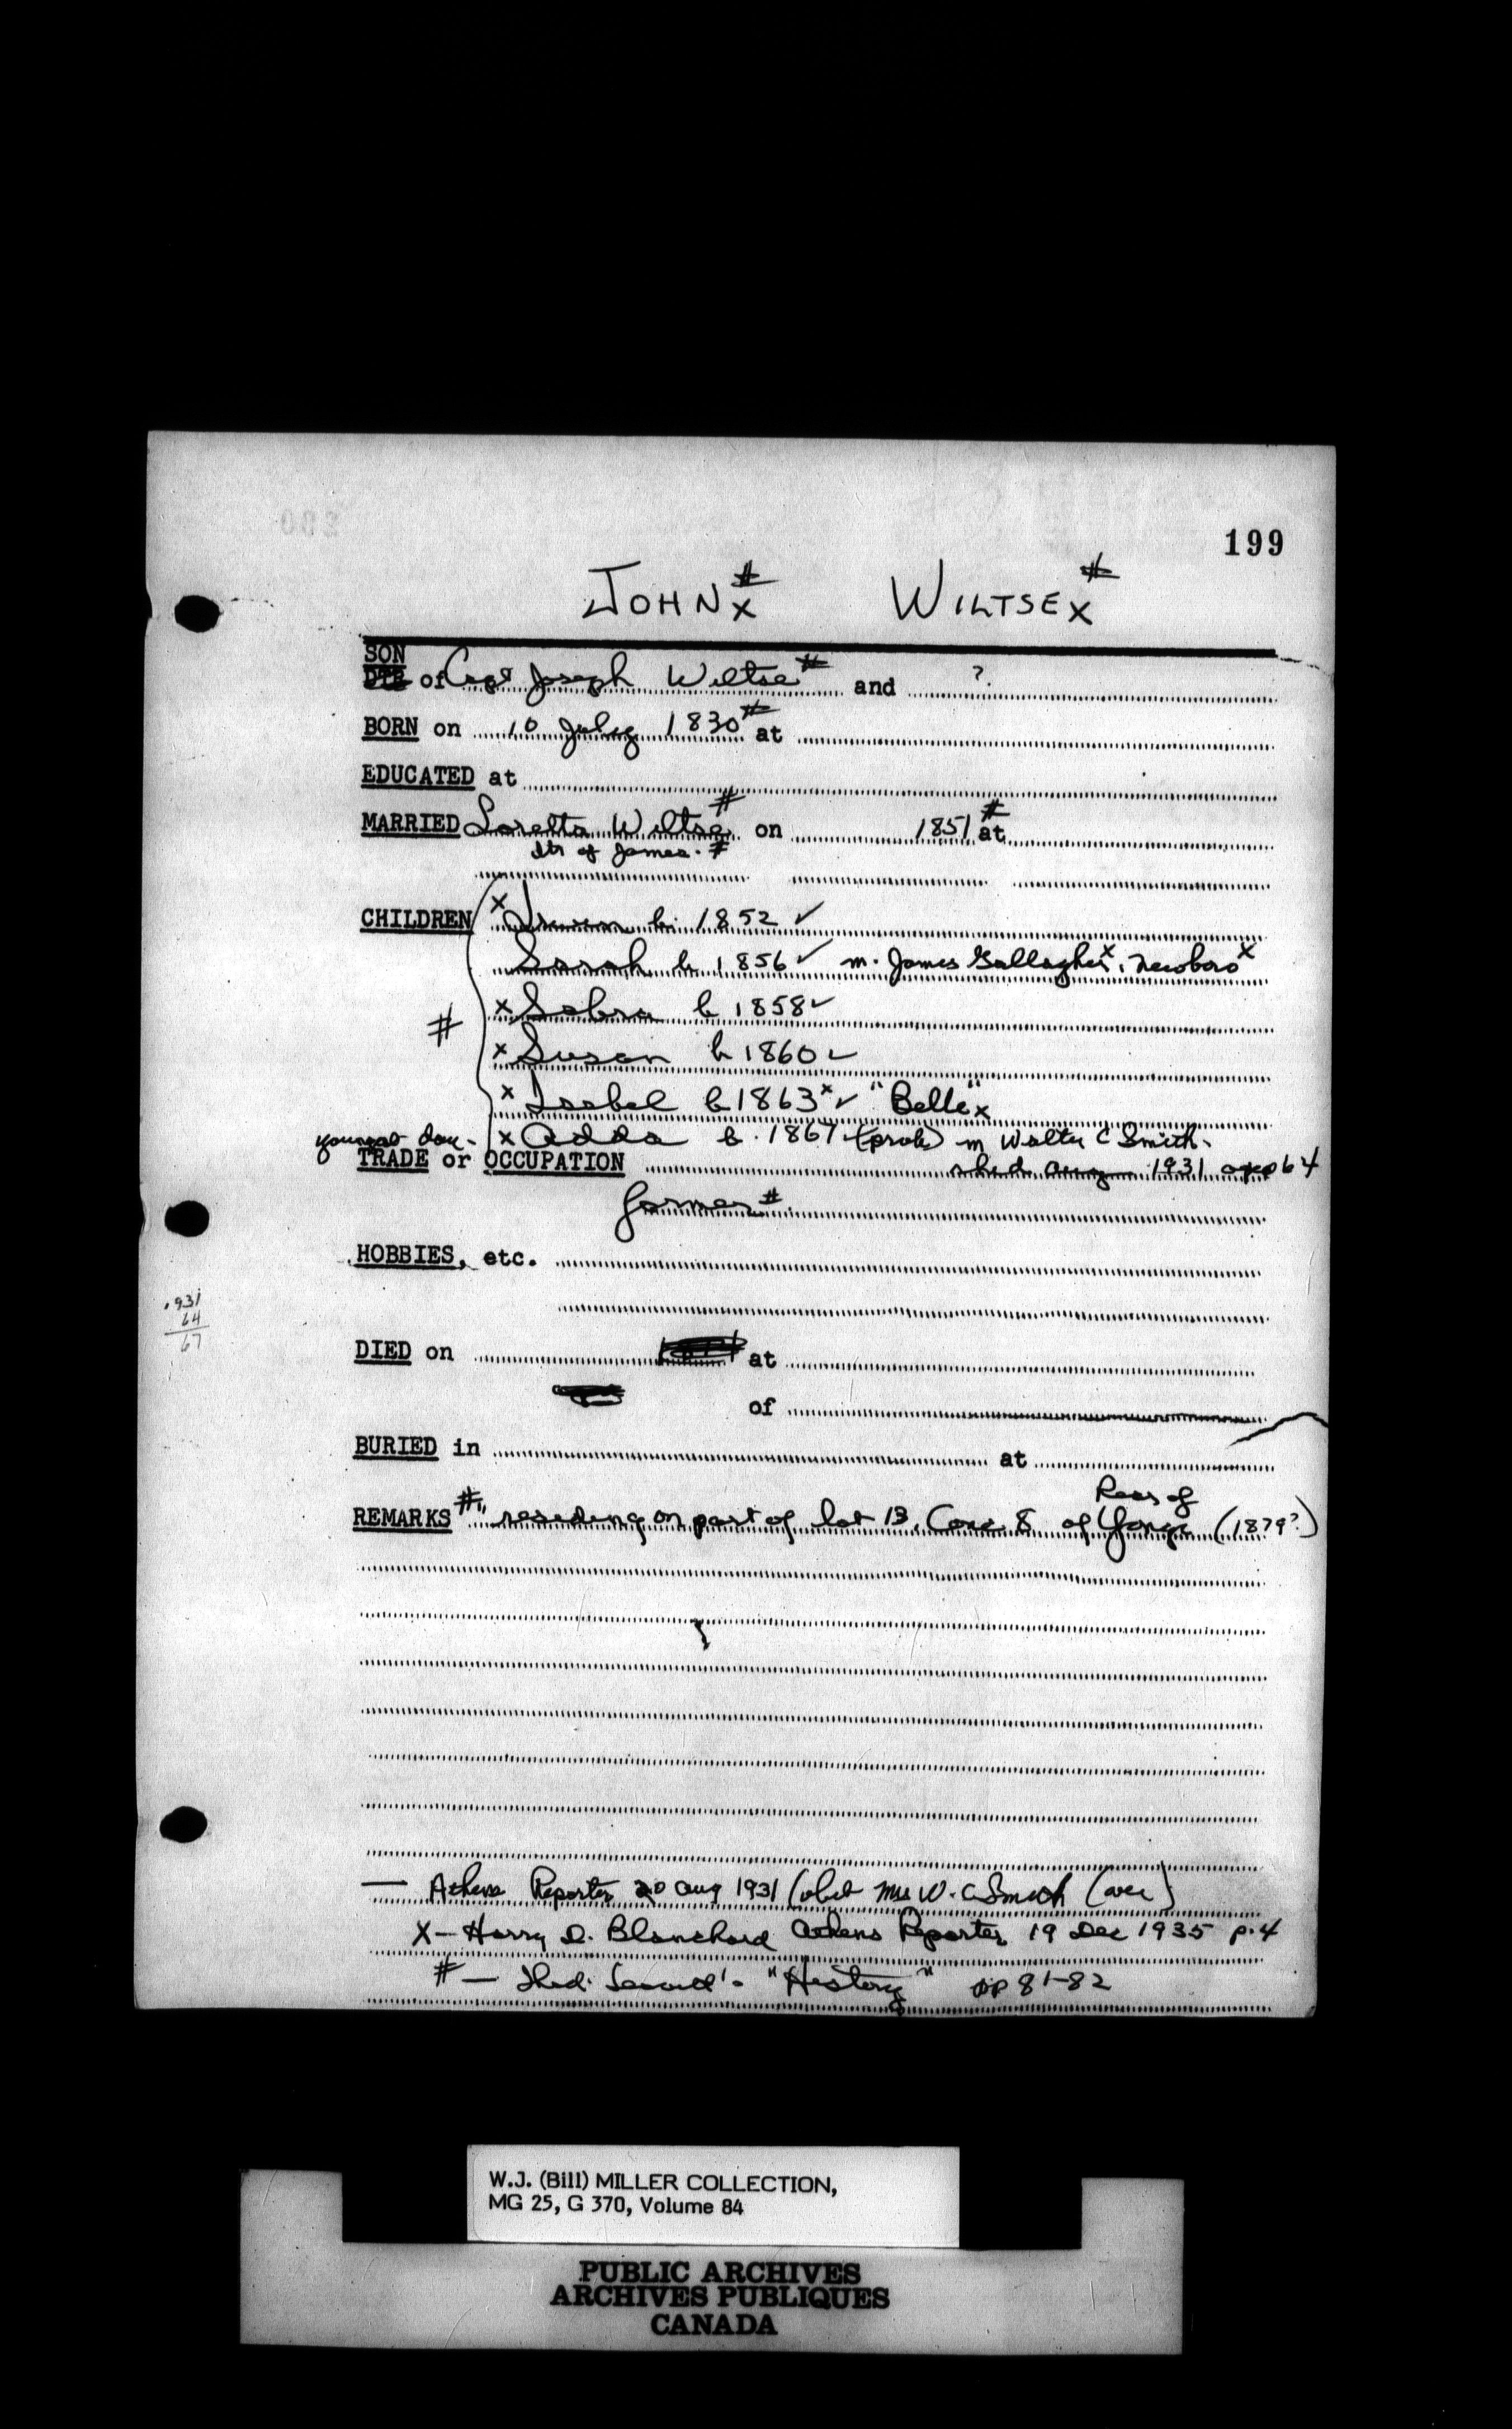 199
JOHN # x WILTSE # x
SON
DTR of Capt Joseph Wiltse # and ?
BORN on 10 July 1830 # at
EDUCATED at
MARRIED Loretta Wiltse # on 1851 # at
dtr of James. #
CHILDREN x b. 1852 ✓
Sarah b 1856 ✓ m. James Gallagher x, Newboro x
x Sabra b 1858 ✓
# x Susan b 1860 ✓
x Isabel b 1863 x ✓ "Belle" x
youngest dau - x Adda b. 1867 (prob) m Walter C Smith.
TRADE or OCCUPATION she d. Aug 1931 age 64
farmer #.
HOBBIES, etc.
1931
64
67
DIED on at
of
BURIED in at
Rear of
REMARKS # "residing on part of lot 13, Conc 8 of Yonge (1879?)
— Athens Reporter 20 Aug 1931 (obit Mrs W. C Smith (over)
X — Harry D. Blanchard Athens Reporter 19 Dec 1935 p. 4
# — Thad. "History" pp 81-82
W.J. (Bill) MILLER COLLECTION,
MG 25, G 370, Volume 84
PUBLIC ARCHIVES
ARCHIVES PUBLIQUES
CANADA